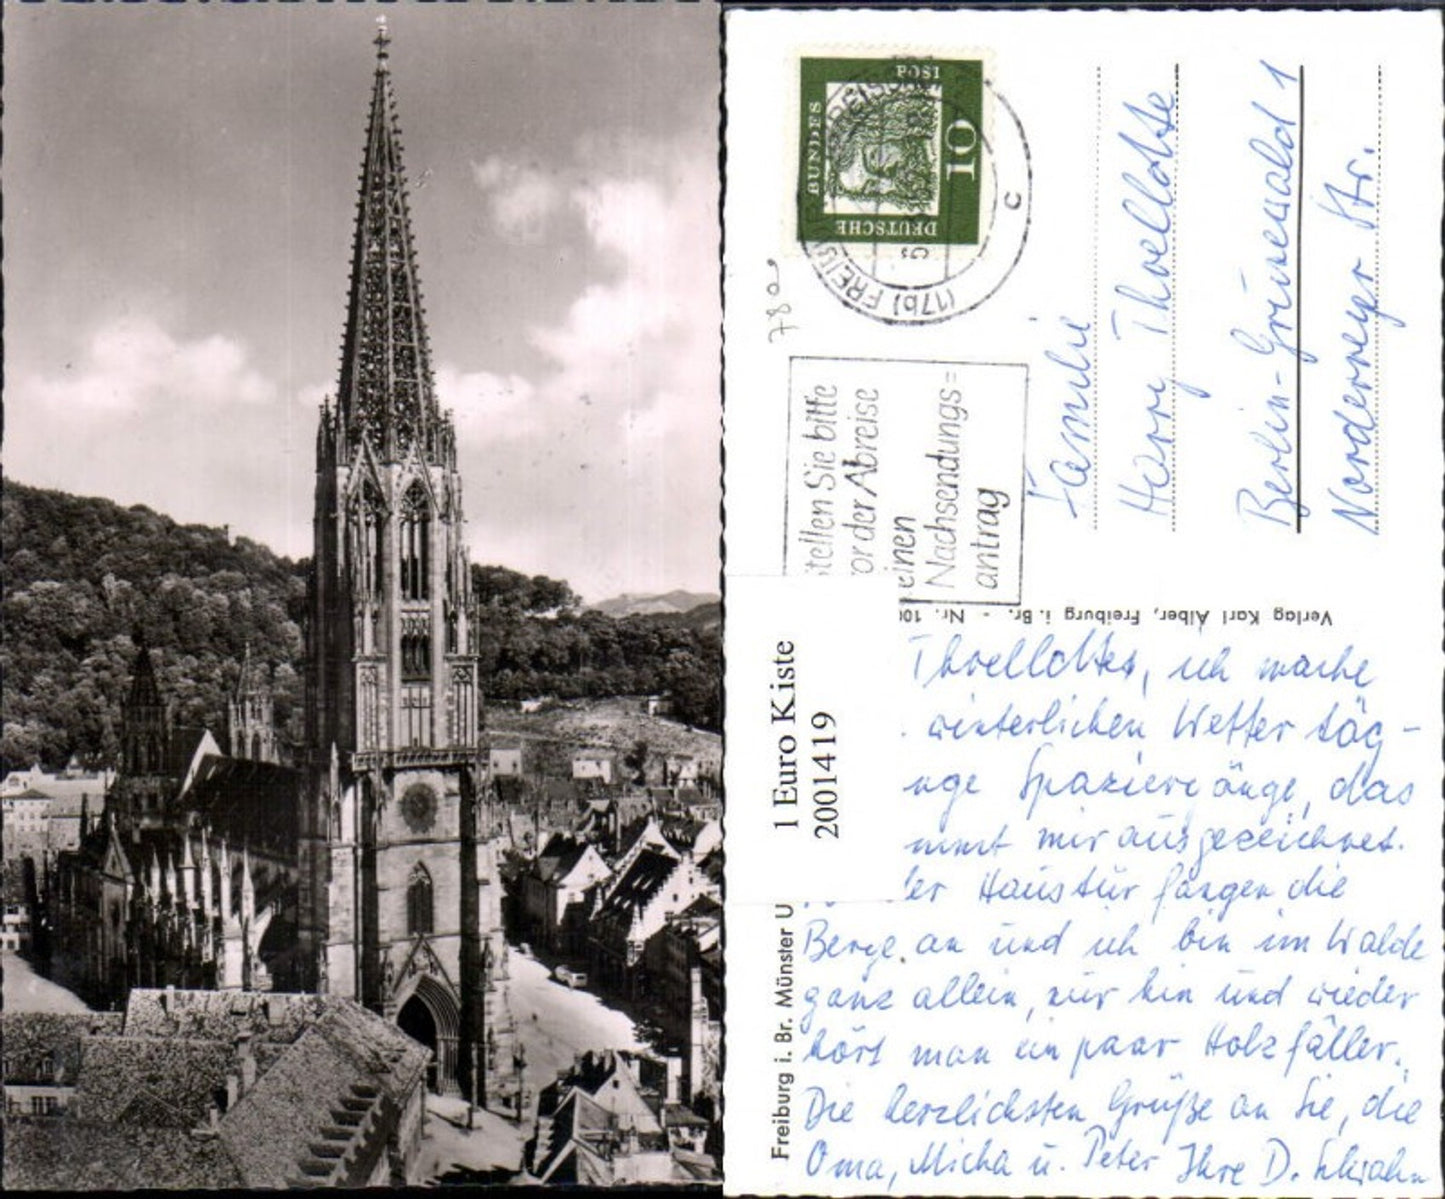 10
DEUTSCHE
BUNDES
POST
(17b) FREIBURG
c
78a
stellen Sie bitte
vor der Abreise
einen
Nachsendungs=
antrag
Familie
Harry Thoellotte
Berlin-Grunewald 1
Norderneyer Str.
Verlag Karl Alber, Freiburg i. Br. - Nr. 100
1 Euro Kiste
2001419
Freiburg i. Br. Münster U
Thoellottes, ich mache
winterlichen Wetter täg-
nge Spaziergänge, das
mmt mir ausgezeichnet.
der Haustür fangen die
Berge an und ich bin im Walde
ganz allein, nur hin und wieder
hört man ein paar Holzfäller.
Die herzlichsten Grüße an Sie, die
Oma, Micha u. Peter Ihre D.